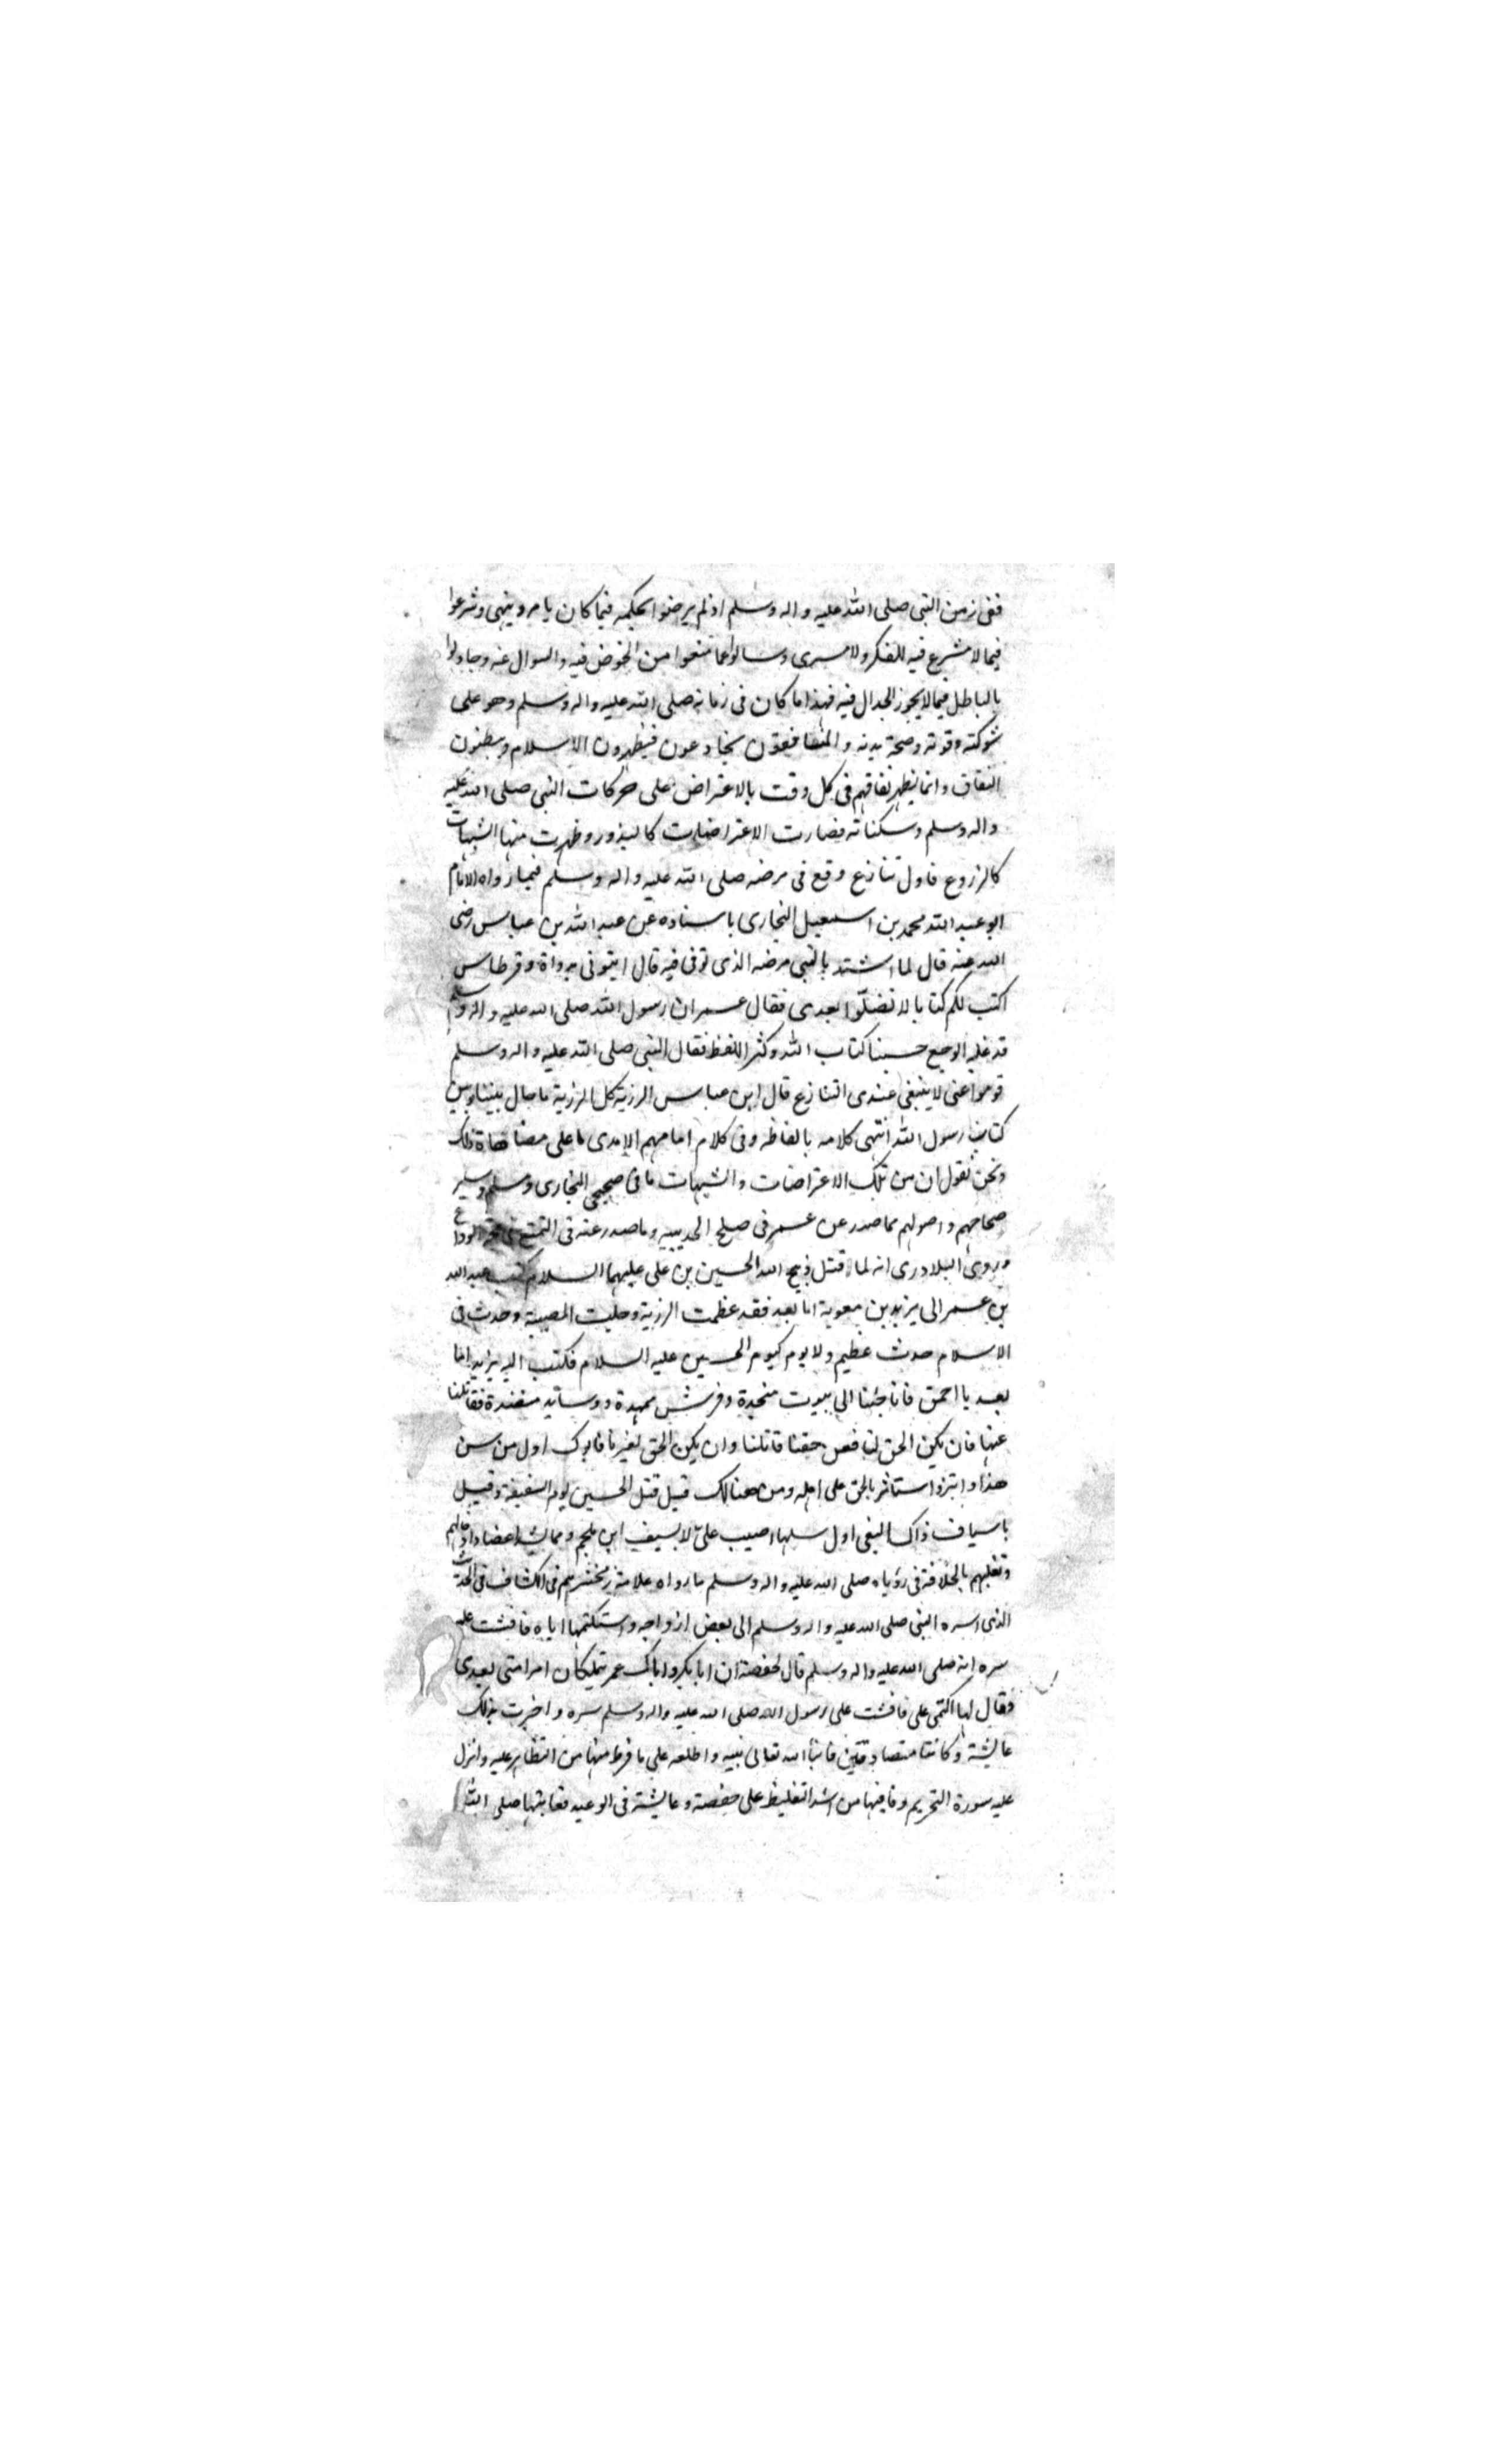 ففی زمن النبی صلی الله علیه و اله وسلم اذ لم یرضوا بحکمه فیما کان یامر وینهی وشرعوا
فیما لا مشرع فیه للفکر ولا مسری وسالوا عما منعوا من الخوض فیه والسوال عنه وجادلوا
بالباطل فیما لا یجوز الجدال فیه فهذا ما کان فی زمانه صلی الله علیه واله وسلم وهو علی
شوکته وقوته وصحة بدنه والمنافقون یخادعون فیظهرون الاسلام ویبطنون
النفاق وانما یظهر نفاقهم فی کل وقت بالاعتراض علی حرکات النبی صلی الله علیه
واله وسلم وسکناته فصارت الاعتراضات کالبذور وظهرت منها الشبهات
کالزروع فاول تنازع وقع فی مرضه صلی الله علیه واله وسلم فیما رواه الامام
ابو عبد الله محمد بن اسمعیل البخاری باسناده عن عبد الله بن عباس رضی
الله عنه قال لما اشتد بالنبی مرضه الذی توفی فیه قال ایتونی بدواة وقرطاس
اکتب لکم کتابا لا تضلّوا بعدی فقال عمر ان رسول الله صلی الله علیه واله وسلم
قد غلبه الوجع حسبنا کتاب الله وکثر اللغط فقال النبی صلی الله علیه واله وسلم
قوموا عنی لا ینبغی عندی التنازع قال ابن عباس الرزیة کل الرزیة ما حال بیننا وبین
کتاب رسول الله انتهی کلامه بالفاظه وفی کلام امامهم الامدی ما علی مضاهاة ذلک
ونحن نقول ان من تلک الاعتراضات والشبهات ما فی صحیحی البخاری ومسلم وسایر
صحاحهم واصولهم مما صدر عن عمر فی صلح الحدیبیه وما صدر عنه فی التمتع فی حجة الوداع
وروی البلادری انه لما قتل ذبیح الله الحسین بن علی علیهما السلام کتب عبد الله
بن عمر الی یزید بن معویة اما بعد فقد عظمت الرزیة وجلت المصیبة وحدث فی
الاسلام حدث عظیم ولا یوم کیوم الحسین علیه السلام فکتب الیه یزید اما
بعد یا احمق فانا جئنا الی بیوت منجدة وفرش ممهدة ووساید منضدة فقاتلنا
عنها فان یکن الحق لنا فعن حقنا قاتلنا وان یکن الحق لغیرنا فابوک اول من سن
هذا وابتز واستاثر بالحق علی اهله ومن هنالک قیل قتل الحسین یوم السقیفة وقیل
باسیاف ذاک البغی اول سلها اصیب علیّ لا بسیف ابن ملجم ومما
وتغلبهم بالخلافة فی رؤیاه صلی الله علیه واله وسلم ما رواه علامة زمخشرهم فی الکشاف فی الحدیث
الذی اسره النبی صلی الله علیه واله وسلم الی بعض ازواجه واستکتمها ایاه فافشت علیه
سره انه صلی الله علیه واله وسلم قال لحفصة ان ابا بکر واباک عمر یملکان امر امتی بعدی
فقال لها اکتمی علی فافشت علی رسول الله صلی الله علیه واله وسلم سره واخبرت بذلک
عایشة وکانتا متصادقتین فانبأ الله تعالی نبیه واطلعه علی ما فرط منها من التظاهر علیه وانزل
علیه سورة التحریم وما فیها من اشد التغلیظ علی حفصة وعایشة فی الوعید فعاتبها صلی الله